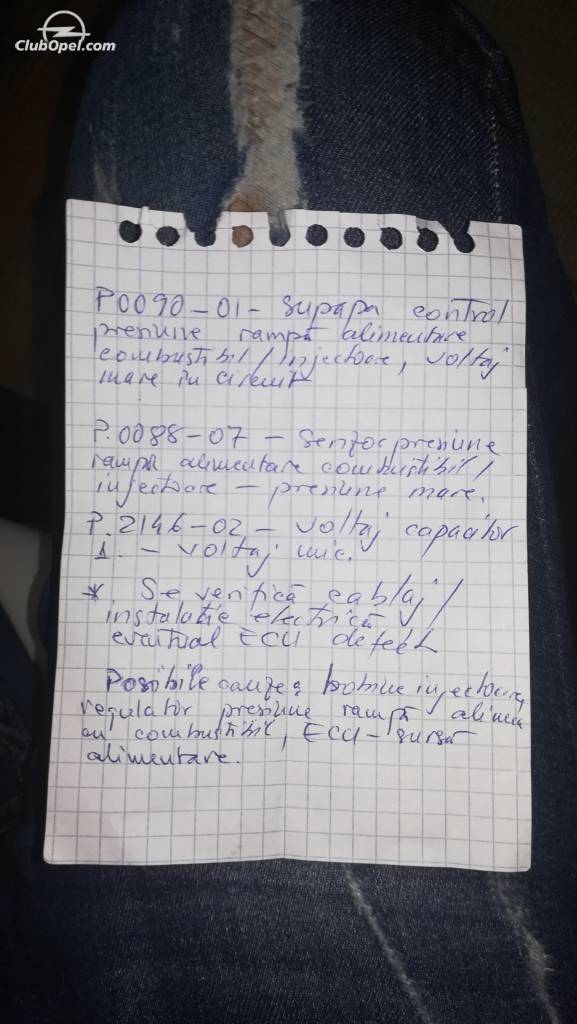 ClubOpel.com
P0090-01- supapa control
presiune rampă alimentare
combustibil/injectoare, voltaj
mare în circuit
P.0088-07 - senzor presiune
rampă alimentare combustibil/
injectoare - presiune mare.
P.2146-02 - voltaj capacitor
1. - voltaj mic.
* Se verifică cablaj/
instalație electrică
eventual ECU defect
Posibile cauze: bobine injectoare,
regulator presiune rampă alimen
cu combustibil, ECU-sursă
alimentare.